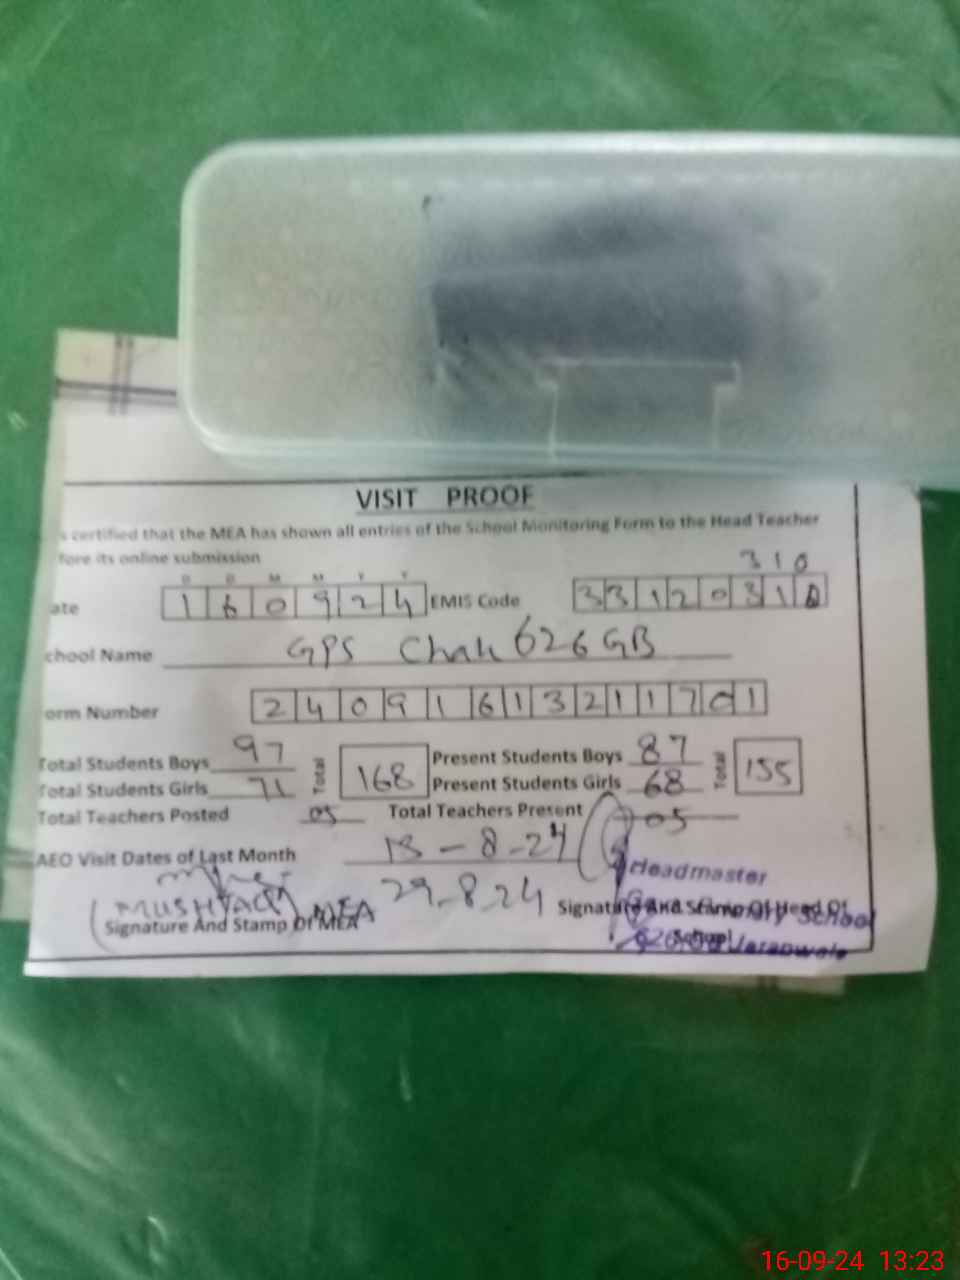 VISIT PROOF
s certified that the MEA has shown all entries of the School Monitoring Form to the Head Teacher
fore its online submission
310
D D M M Y Y
ate 160924 EMIS Code 3312031
chool Name GPS Chak 626 GB
orm Number 24091613211701
Total Students Boys 97 Total 168 Present Students Boys 87 Total 155
Total Students Girls 71 Present Students Girls 68
Total Teachers Posted 05 Total Teachers Present 05
AEO Visit Dates of Last Month 13-8-24
29-8-24
Headmaster
MUSHTAQ MEA
Signature And Stamp Of MEA
Signature And Stamp Of Head Of School
Primary School
Jaranwala
16-09-24 13:23